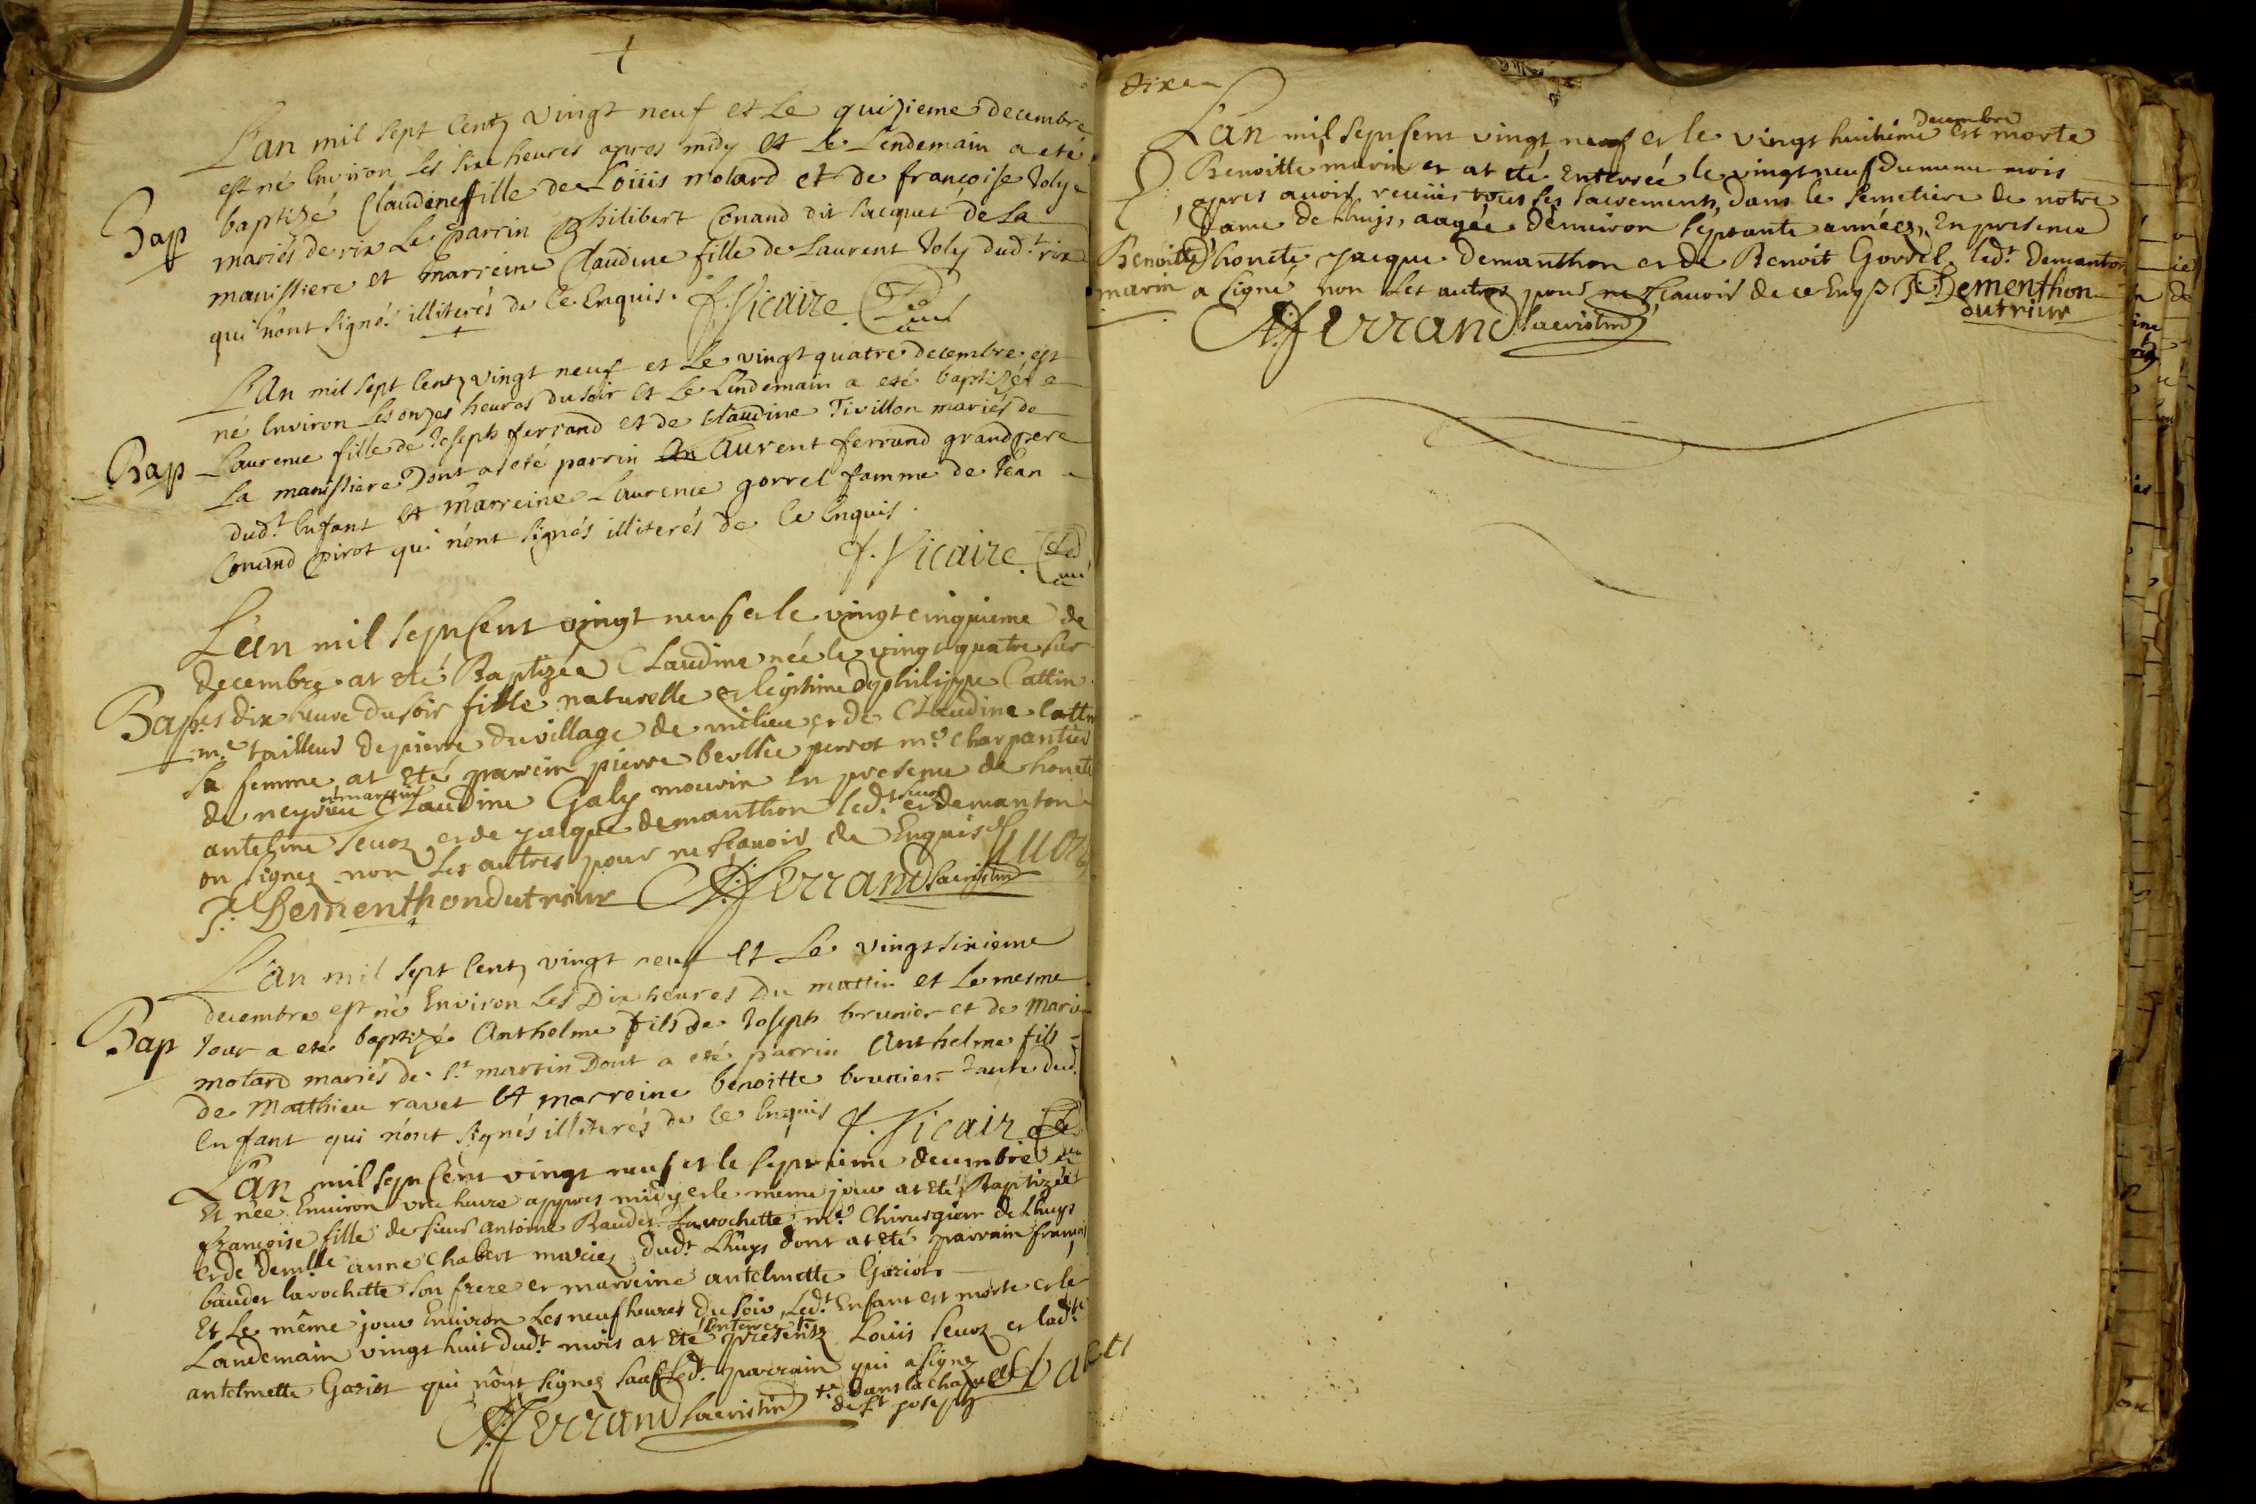 L'an mil sept Centz vingt neuf et Le quizieme decembre
est né Environ Les six heures apres midy et Le Lendemain a eté
Bap
baptizé Claudine fille de Loüis molard et de francoise Joly
mariés de rix Le parrin philibert Conand dit Jacquet de La
manissiere et marreine Claudine fille de Laurent Joly dudt rix
qui n'ont signé illiterés de Ce Enquis. f. Vicaire
L'an mil sept Centz vingt neuf et Le vingt quatre decembre est
né Environ Les onzes heures du soir et Le Lendemain a eté baptizée
Bap
Laurence fille de Joseph ferrand et de Claudine Tivillon mariés de
La manissiere Dont a eté parrin Laurent ferrand grand pere
dudt Enfant et marreine Laurence gorrel famme de Jean
Conand pirot qui n'ont signés illiterés de Ce Enquis.
f. Vicaire
L'an mil sept Cent vingt neuf et le vingt cinquieme de
decembre at eté Baptizée Claudine née le vingt quatre sur
Bap
les dix heure du soir fille naturelle et legitime dy philippe Cattin
me tailleur de pierre du village de milieu et de Claudine Cattin
sa femme at eté parrein pierre berlie perrot me Charpantier
de neyrieu et marreine Claudine Galy mourin En presence de honete
antelme Sevoz et de Jacque demanthon ledt Sevoz et demanton
on signez non Les autres pour ne scavoir de Enquis Sevoz
J. Dementhon dutrieur A. Ferrand sacristin
L'an mil sept Centz vingt neuf et Le vingt sixieme
decembre est né Environ Les Dix heures Du mattin et Le mesme
Bap
Jour a eté baptizé Anthelme fils de Joseph brunier et de Marie
molard mariés de St martin Dont a eté parrin Anthelme fils
de Matthieu ravet et marreine benoitte brunier tante dud.
Enfant qui n'ont signés illiterés de Ce Enquis f. Vicaire
L'an mil sept Cent vingt neuf et le septieme decembre
Et née Environ une heure appres midy et le meme jour at eté Baptizée
françoise fille de sieur antoine Baudet Larochette me Chirurgien de Lhuys
et de demlle anne Chabert mariez dudt Lhuys dont at eté parrain françois
baudet larochette son frere et marreine antelmette Goriot
Et Le même jour Environ Les neuf heures du soir Ledt Enfant est morte et le
Landemain vingt huit dudt mois at eté Enterrée presentz Loüis Sevoz et ladte
antelmette Goriot qui n'ont signez sauf Ledt parrain qui a signez
A. Ferrand sacristin dans la chapelle
de St joseph
L'an mil sept Cent vingt neuf et le vingt huitième decembre est morte
Benoitte marin et at eté Enterrée le vingt neuf du meme mois
apres avoir reçüe tous ses sacrements, dans le semetiere de notre
Dame de Lhuys, aagée d'environ septante années, En presence
Benoitte
D'honete Jacque Demanthon et de Benoit Gorrel. ledt Demanton
marin
a signé non Les autres pour ne scavoir de ce Enqs J. Dementhon
dutrieur
A. Ferrand sacristin